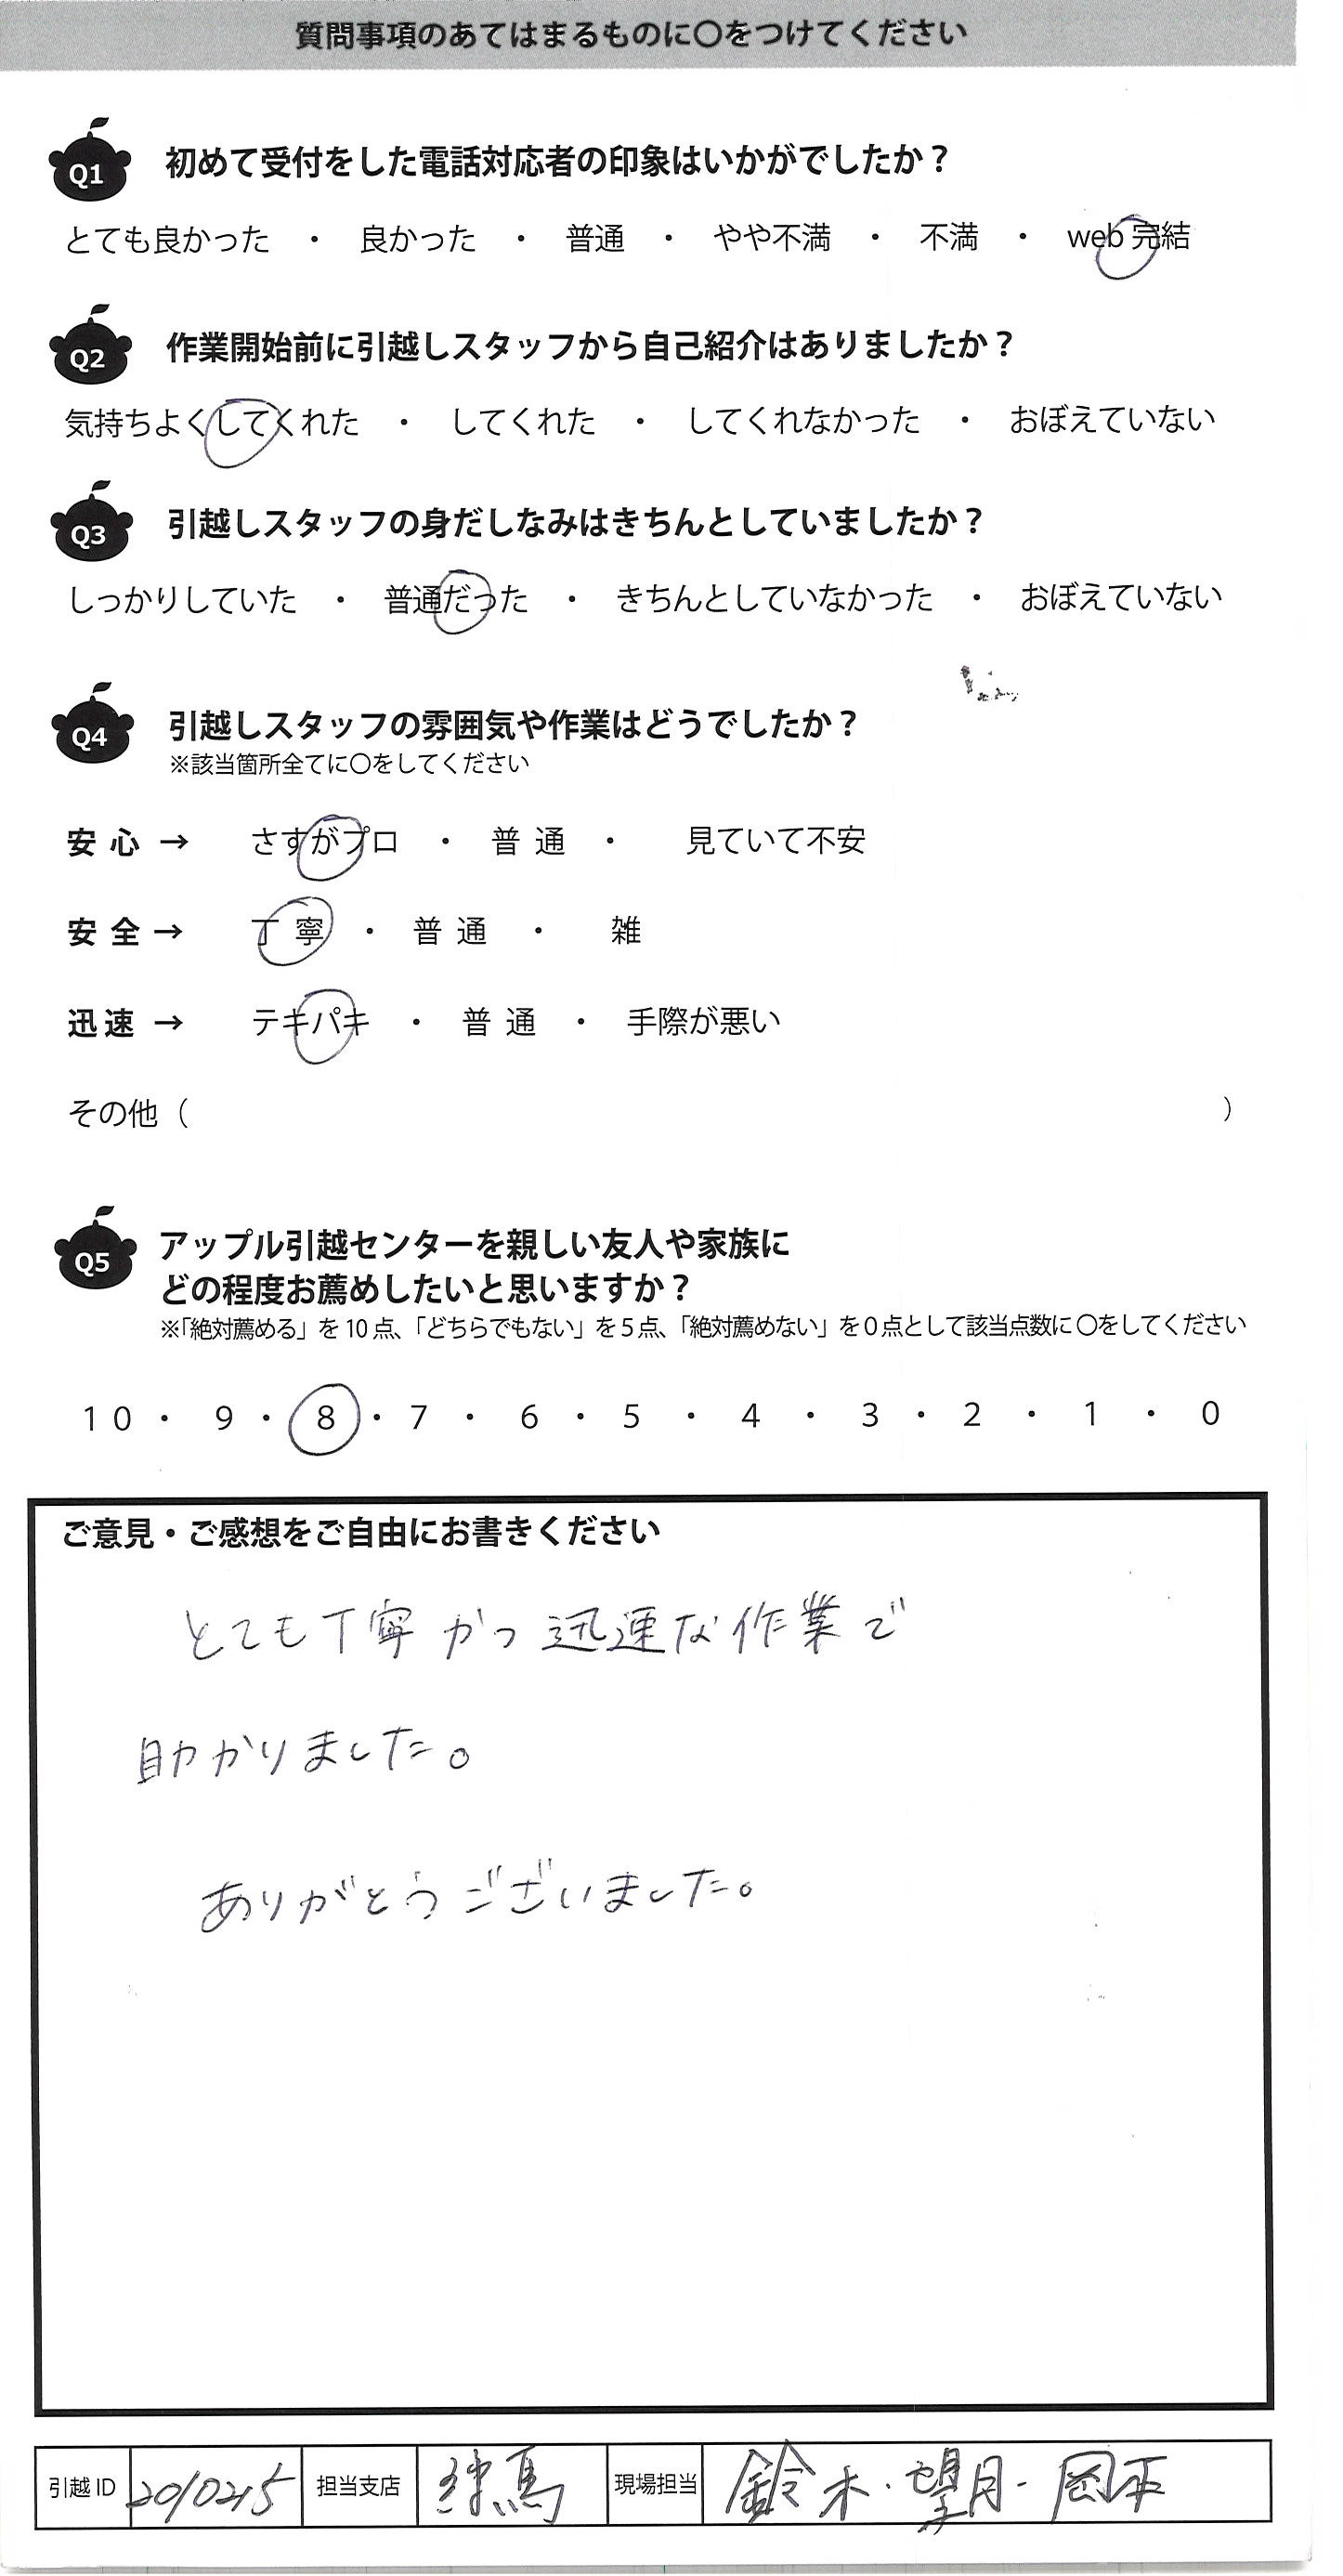 質問事項のあてはまるものに〇をつけてください
Q1 初めて受付をした電話対応者の印象はいかがでしたか？
とても良かった ・ 良かった ・ 普通 ・ やや不満 ・ 不満 ・ web 完結
Q2 作業開始前に引越しスタッフから自己紹介はありましたか？
気持ちよくしてくれた ・ してくれた ・ してくれなかった ・ おぼえていない
Q3 引越しスタッフの身だしなみはきちんとしていましたか？
しっかりしていた ・ 普通だった ・ きちんとしていなかった ・ おぼえていない
Q4 引越しスタッフの雰囲気や作業はどうでしたか？
※該当箇所全てに〇をしてください
安心 → さすがプロ ・ 普通 ・ 見ていて不安
安全 → 丁寧 ・ 普通 ・ 雑
迅速 → テキパキ ・ 普通 ・ 手際が悪い
その他（ ）
Q5 アップル引越センターを親しい友人や家族に
どの程度お薦めしたいと思いますか？
※「絶対薦める」を10点、「どちらでもない」を5点、「絶対薦めない」を0点として該当点数に〇をしてください
10 ・ 9 ・ 8 ・ 7 ・ 6 ・ 5 ・ 4 ・ 3 ・ 2 ・ 1 ・ 0
ご意見・ご感想をご自由にお書きください
とても丁寧かつ迅速な作業で
助かりました。
ありがとうございました。
引越ID 担当支店 練馬 現場担当 鈴木・望月・